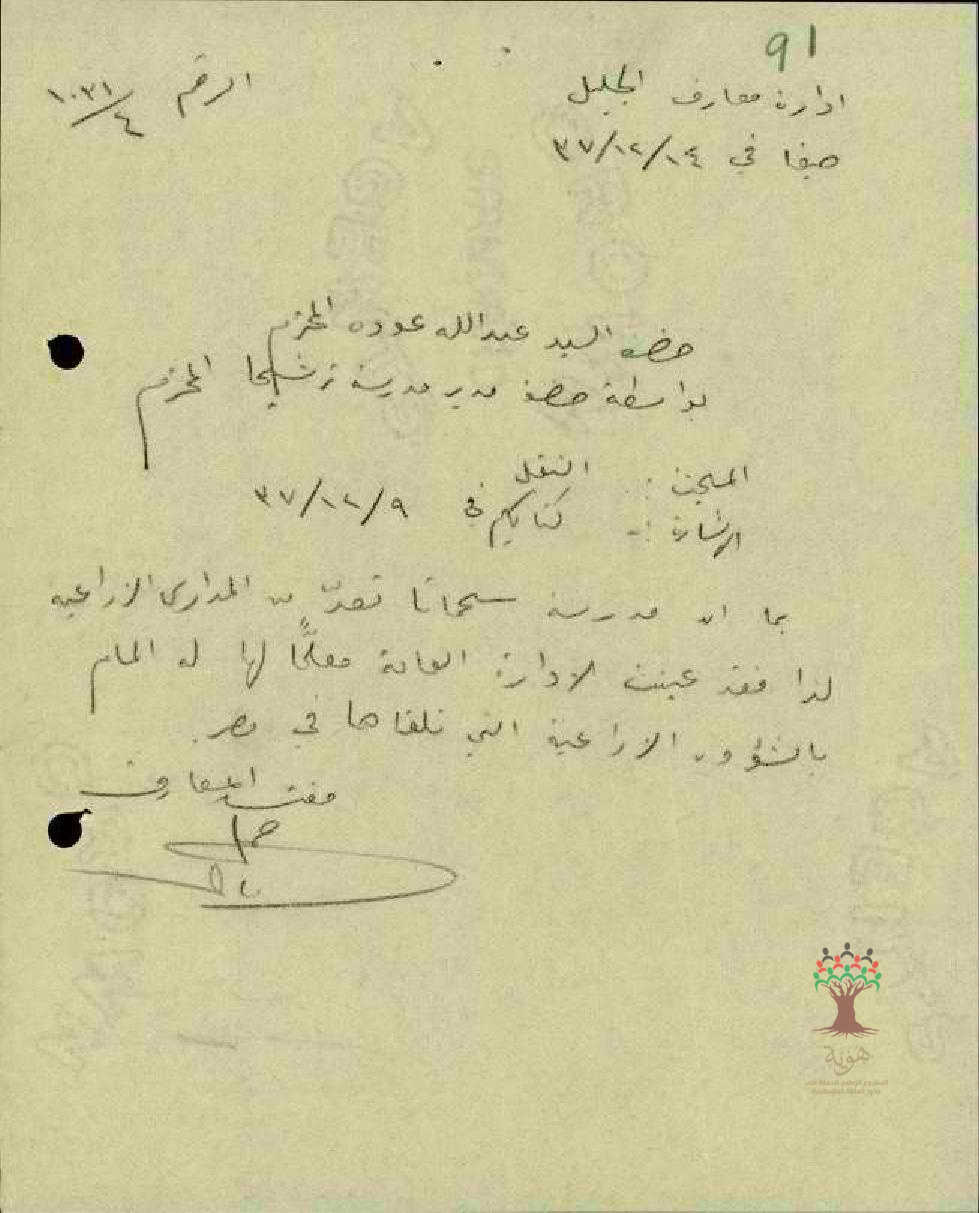 91
ادارة معارف الجليل
الرقم ١٠٣١/٤
حيفا في ٣٧/١٢/١٤
حضرة السيد عبدالله عوده المحترم
بواسطة حضرة مدير مدرسة ترشيحا المحترم
المبحث :. النقل
الاشارة :. كتابكم في ٣٧/١٢/٩
بما ان مدرسة سحماتا تعدّ من المدارس الزراعية
لذا فقد عينت الادارة العامة معلمًا لها له المام
بالشؤون الزراعية التي تلقاها في مصر.
مفتش المعارف
هوية
المشروع الوطني للحفاظ على
جذور العائلة الفلسطينية